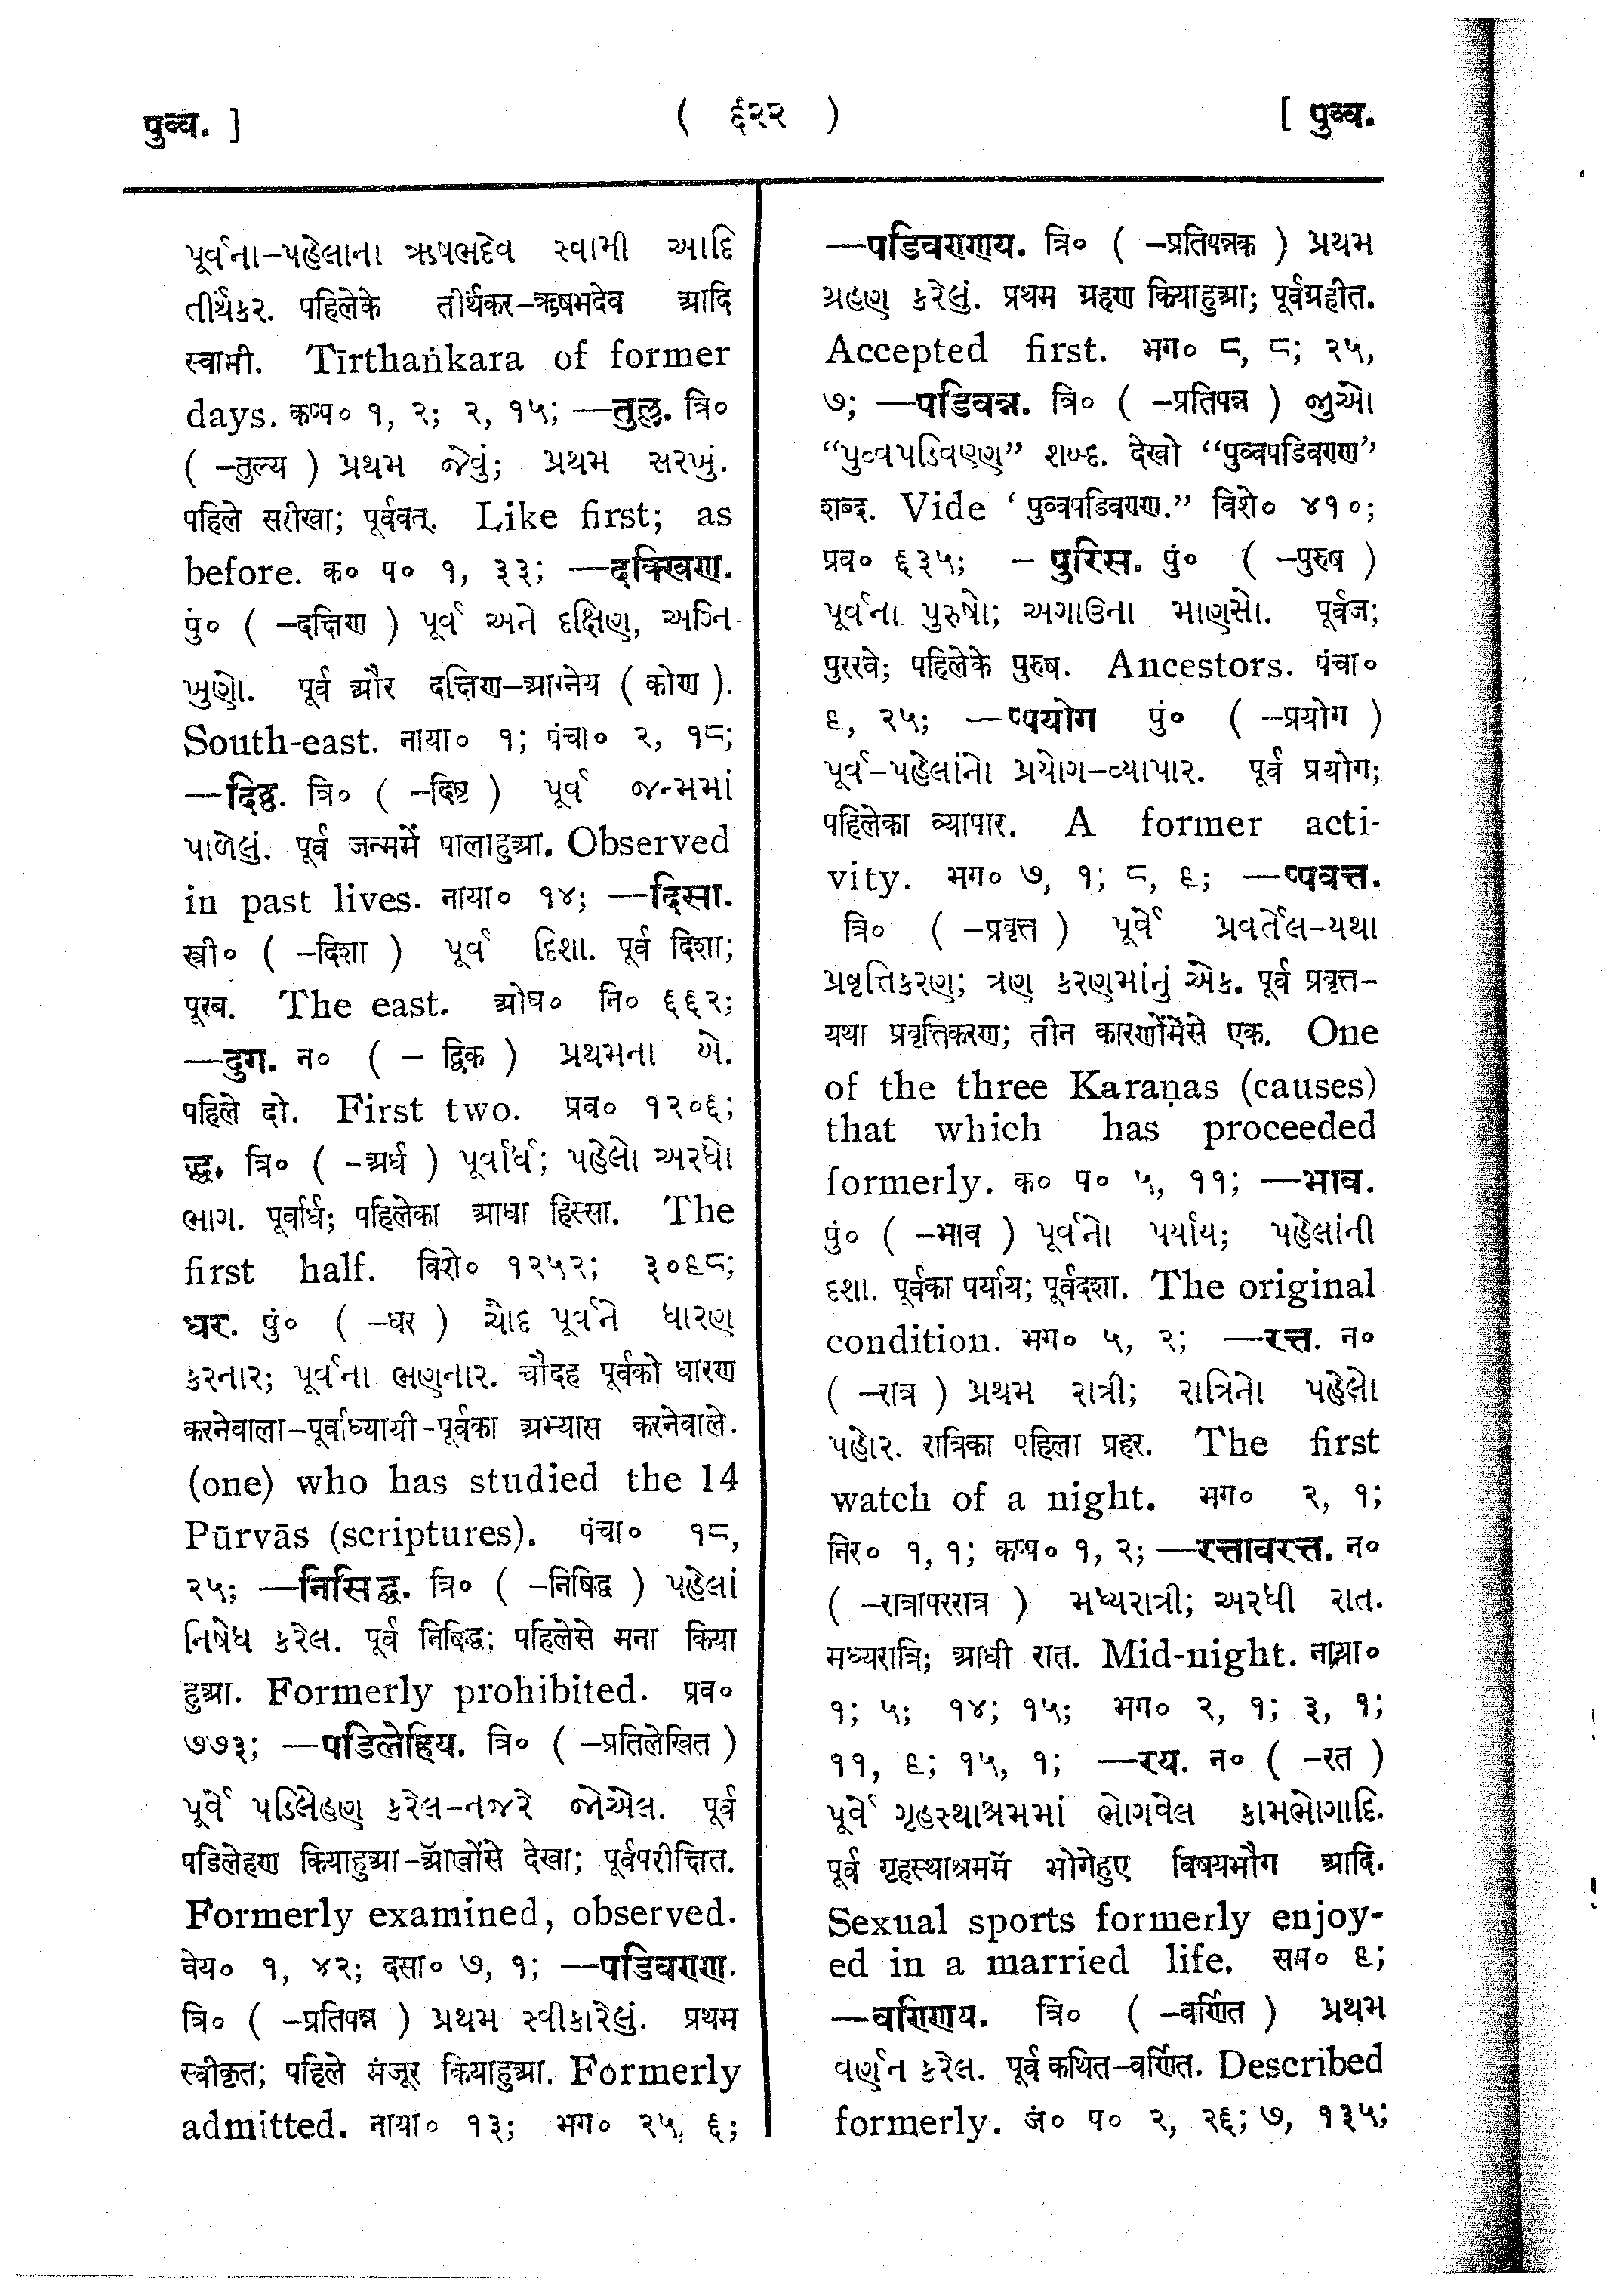 पुव्व. ]
( ६२२ )
[ पुव्व.
પૂર્વના-પહેલાના ઋષભદેવ સ્વામી આદિ
તીર્થંકર. पहिलेके तीर्थंकर-ऋषभदेव आदि
स्वामी. Tīrthaṅkara of former
days. कप्प० १, २; २, १५; —तुल्ल. त्रि०
( -तुल्य ) પ્રથમ જેવું; પ્રથમ સરખું.
पहिले सरीखा; पूर्ववत्. Like first; as
before. क० प० १, ३३; —दक्खिण.
पुं० ( -दक्षिण ) પૂર્વ અને દક્ષિણ, અગ્નિ
ખુણો. पूर्व और दक्षिण-आग्नेय ( कोण ).
South-east. नाया० १; पंचा० २, १८;
—दिट्ठ. त्रि० ( -दिष्ट ) પૂર્વ જન્મમાં
પાળેલું. पूर्व जन्ममें पालाहुआ. Observed
in past lives. नाया० १४; —दिसा.
स्त्री० ( -दिशा ) પૂર્વ દિશા. पूर्व दिशा;
पूरब. The east. ओघ० नि० ६६२;
—दुग. न० ( - द्विक ) પ્રથમના બે.
पहिले दो. First two. प्रव० १२०६;
द्ध. त्रि० ( -अर्ध ) પૂર્વાર્ધ; પહેલો અરધો
ભાગ. पूर्वार्ध; पहिलेका आधा हिस्सा. The
first half. विशे० १२५२; ३०९८;
धर. पुं० ( -धर ) ચૌદ પૂર્વને ધારણ
કરનાર; પૂર્વના ભણનાર. चौदह पूर्वको धारण
करनेवाला-पूर्वाध्यायी-पूर्वका अभ्यास करनेवाले.
(one) who has studied the 14
Pūrvās (scriptures). पंचा० १८,
२५; —निसिद्ध. त्रि० ( -निषिद्ध ) પહેલાં
નિષેધ કરેલ. पूर्व निषिद्ध; पहिलेसे मना किया
हुआ. Formerly prohibited. प्रव०
७७३; —पडिलेहिय. त्रि० ( -प्रतिलेखित )
પૂર્વે પડિલેહણ કરેલ-નજરે જોએલ. पूर्व
पडिलेहण कियाहुआ-आँखोंसे देखा; पूर्वपरीक्षित.
Formerly examined, observed.
वेय० १, ४२; दसा० ७, १; —पडिवण्ण.
त्रि० ( -प्रतिपन्न ) પ્રથમ સ્વીકારેલું. प्रथम
स्वीकृत; पहिले मंजूर कियाहुआ. Formerly
admitted. नाया० १३; भग० २५, ६;
—पडिवण्णय. त्रि० ( -प्रतिपन्नक ) પ્રથમ
ગ્રહણ કરેલું. प्रथम ग्रहण कियाहुआ; पूर्वग्रहीत.
Accepted first. भग० ८, ८; २५,
७; —पडिवन्न. त्रि० ( -प्रतिपन्न ) જુઓ
“પુવ્વપડિવણ્ણ” શબ્દ. देखो “पुव्वपडिवण्ण”
शब्द. Vide ‘ पुव्वपडिवण्ण.” विशे० ४१०;
प्रव० ६३५; - पुरिस. पुं० ( -पुरुष )
પૂર્વના પુરુષો; અગાઉના માણસો. पूर्वज;
पुरखे; पहिलेके पुरुष. Ancestors. पंचा०
९, २५; —प्पयोग पुं० ( -प्रयोग )
પૂર્વ-પહેલાંનો પ્રયોગ-વ્યાપાર. पूर्व प्रयोग;
पहिलेका व्यापार. A former acti-
vity. भग० ७, १; ८, ९; —प्पवत्त.
त्रि० ( -प्रवृत्त ) પૂર્વે પ્રવર્તેલ-યથા
પ્રવૃત્તિકરણ; ત્રણ કરણમાંનું એક. पूर्व प्रवृत्त-
यथा प्रवृत्तिकरण; तीन कारणोंमेंसे एक. One
of the three Karaṇas (causes)
that which has proceeded
formerly. क० प० ५, ११; —भाव.
पुं० ( -भाव ) પૂર્વનો પર્યાય; પહેલાંની
દશા. पूर्वका पर्याय; पूर्वदशा. The original
condition. भग० ५, २; —रत्त. न०
( -रात्र ) પ્રથમ રાત્રી; રાત્રિનો પહેલો
પહોર. रात्रिका पहिला प्रहर. The first
watch of a night. भग० २, १;
निर० १, १; कप्प० १, २; —रत्तावरत्त. न०
( -रात्रापररात्र ) મધ્યરાત્રી; અરધી રાત.
मध्यरात्रि; आधी रात. Mid-night. नाया०
१; ५; १४; १५; भग० २, १; ३, १;
११, ९; १५, १; —रय. न० ( -रत )
પૂર્વે ગૃહસ્થાશ્રમમાં ભોગવેલ કામભોગાદિ.
पूर्व गृहस्थाश्रममें भोगेहुए विषयभौग आदि.
Sexual sports formerly enjoy-
ed in a married life. सम० ९;
—वण्णिय. त्रि० ( -वर्णित ) પ્રથમ
વર્ણન કરેલ. पूर्व कथित-वर्णित. Described
formerly. जं० प० २, २६; ७, १३५;